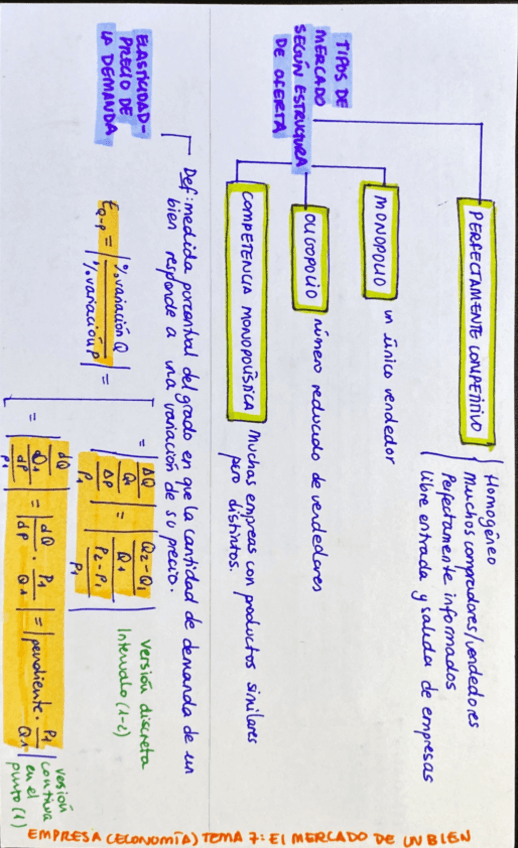 EMPRESA (ECONOMÍA) TEMA 7: El MERCADO DE UN BIEN
TIPOS DE
MERCADO
SEGÚN ESTRUCTURA
DE OFERTA
PERFECTAMENTE COMPETITIVO
Homogéneo
Muchos compradores/vendedores
Perfectamente informados
libre entrada y salida de empresas
MONOPOLIO un único vendedor
OLIGOPOLIO número reducido de vendedores
COMPETENCIA MONOPOLÍSTICA Muchas empresas con productos similares
pero distintos.
ELASTICIDAD-
PRECIO DE
LA DEMANDA
Def: medida porcentual del grado en que la cantidad de demanda de un
bien responde a una variación de su precio.
E_Q-P = | %variación Q / %variación P | =
= | (ΔQ / Q1) / (ΔP / P1) | = | ((Q2-Q1) / Q1) / ((P2-P1) / P1) | versión discreta
Intervalo (1-2)
= | (dQ / Q1) / (dP / P1) | = | dQ/dP · P1/Q1 | = | pendiente · P1/Q1 | versión
continua
en el
punto (1)